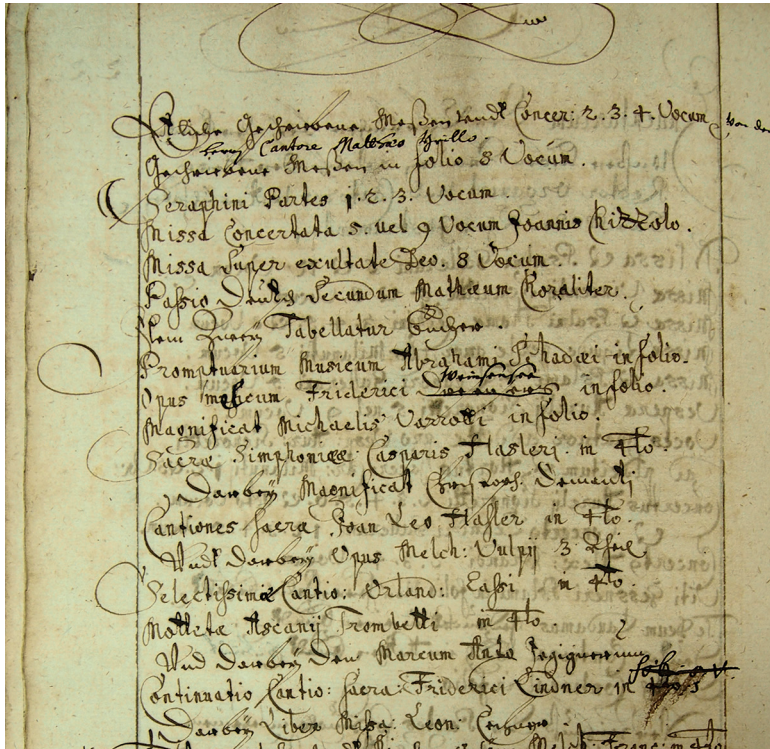 Etliche Geschriebene Messen vndt Concer: 2. 3. 4. Vocum von
Cantore Matthæo
Geschriebene Messen in folio 8 Vocum.
Seraphini Partes 1. 2. 3. Vocum.
Missa Concertata 5. uel 9 Vocum Joannis Rizzolo.
Missa Super exultate Deo. 8 Vocum.
Passio Deutsch Secundum Mathæum Choraliter.
Item Zweÿ Tabellatur Bücher.
Promptuarium Musicum Abrahami Schadæi in folio.
Weinsensee
Opus melicum Friderici in folio.
Magnificat Michaelis Varrotti in folio.
Sacræ Simphoniææ Casparis Hasleri in 4to.
Darbeÿ Magnificat Christoph: Dementi
Cantiones Sacræ Joan Leo Hasler in 4to.
Vndt darbeÿ Opus Melch: Vulpij 3 Theil
Selectissimæ Cantio: Orland: Lassi in 4to.
Motteta Ascanij Trombetti in 4to.
Vnd darbeÿ den Marcum Anto
Continuatio Cantio: Sacra: Friderici Lindner in
Darbeÿ Liber Missa: Leon: Lechner.